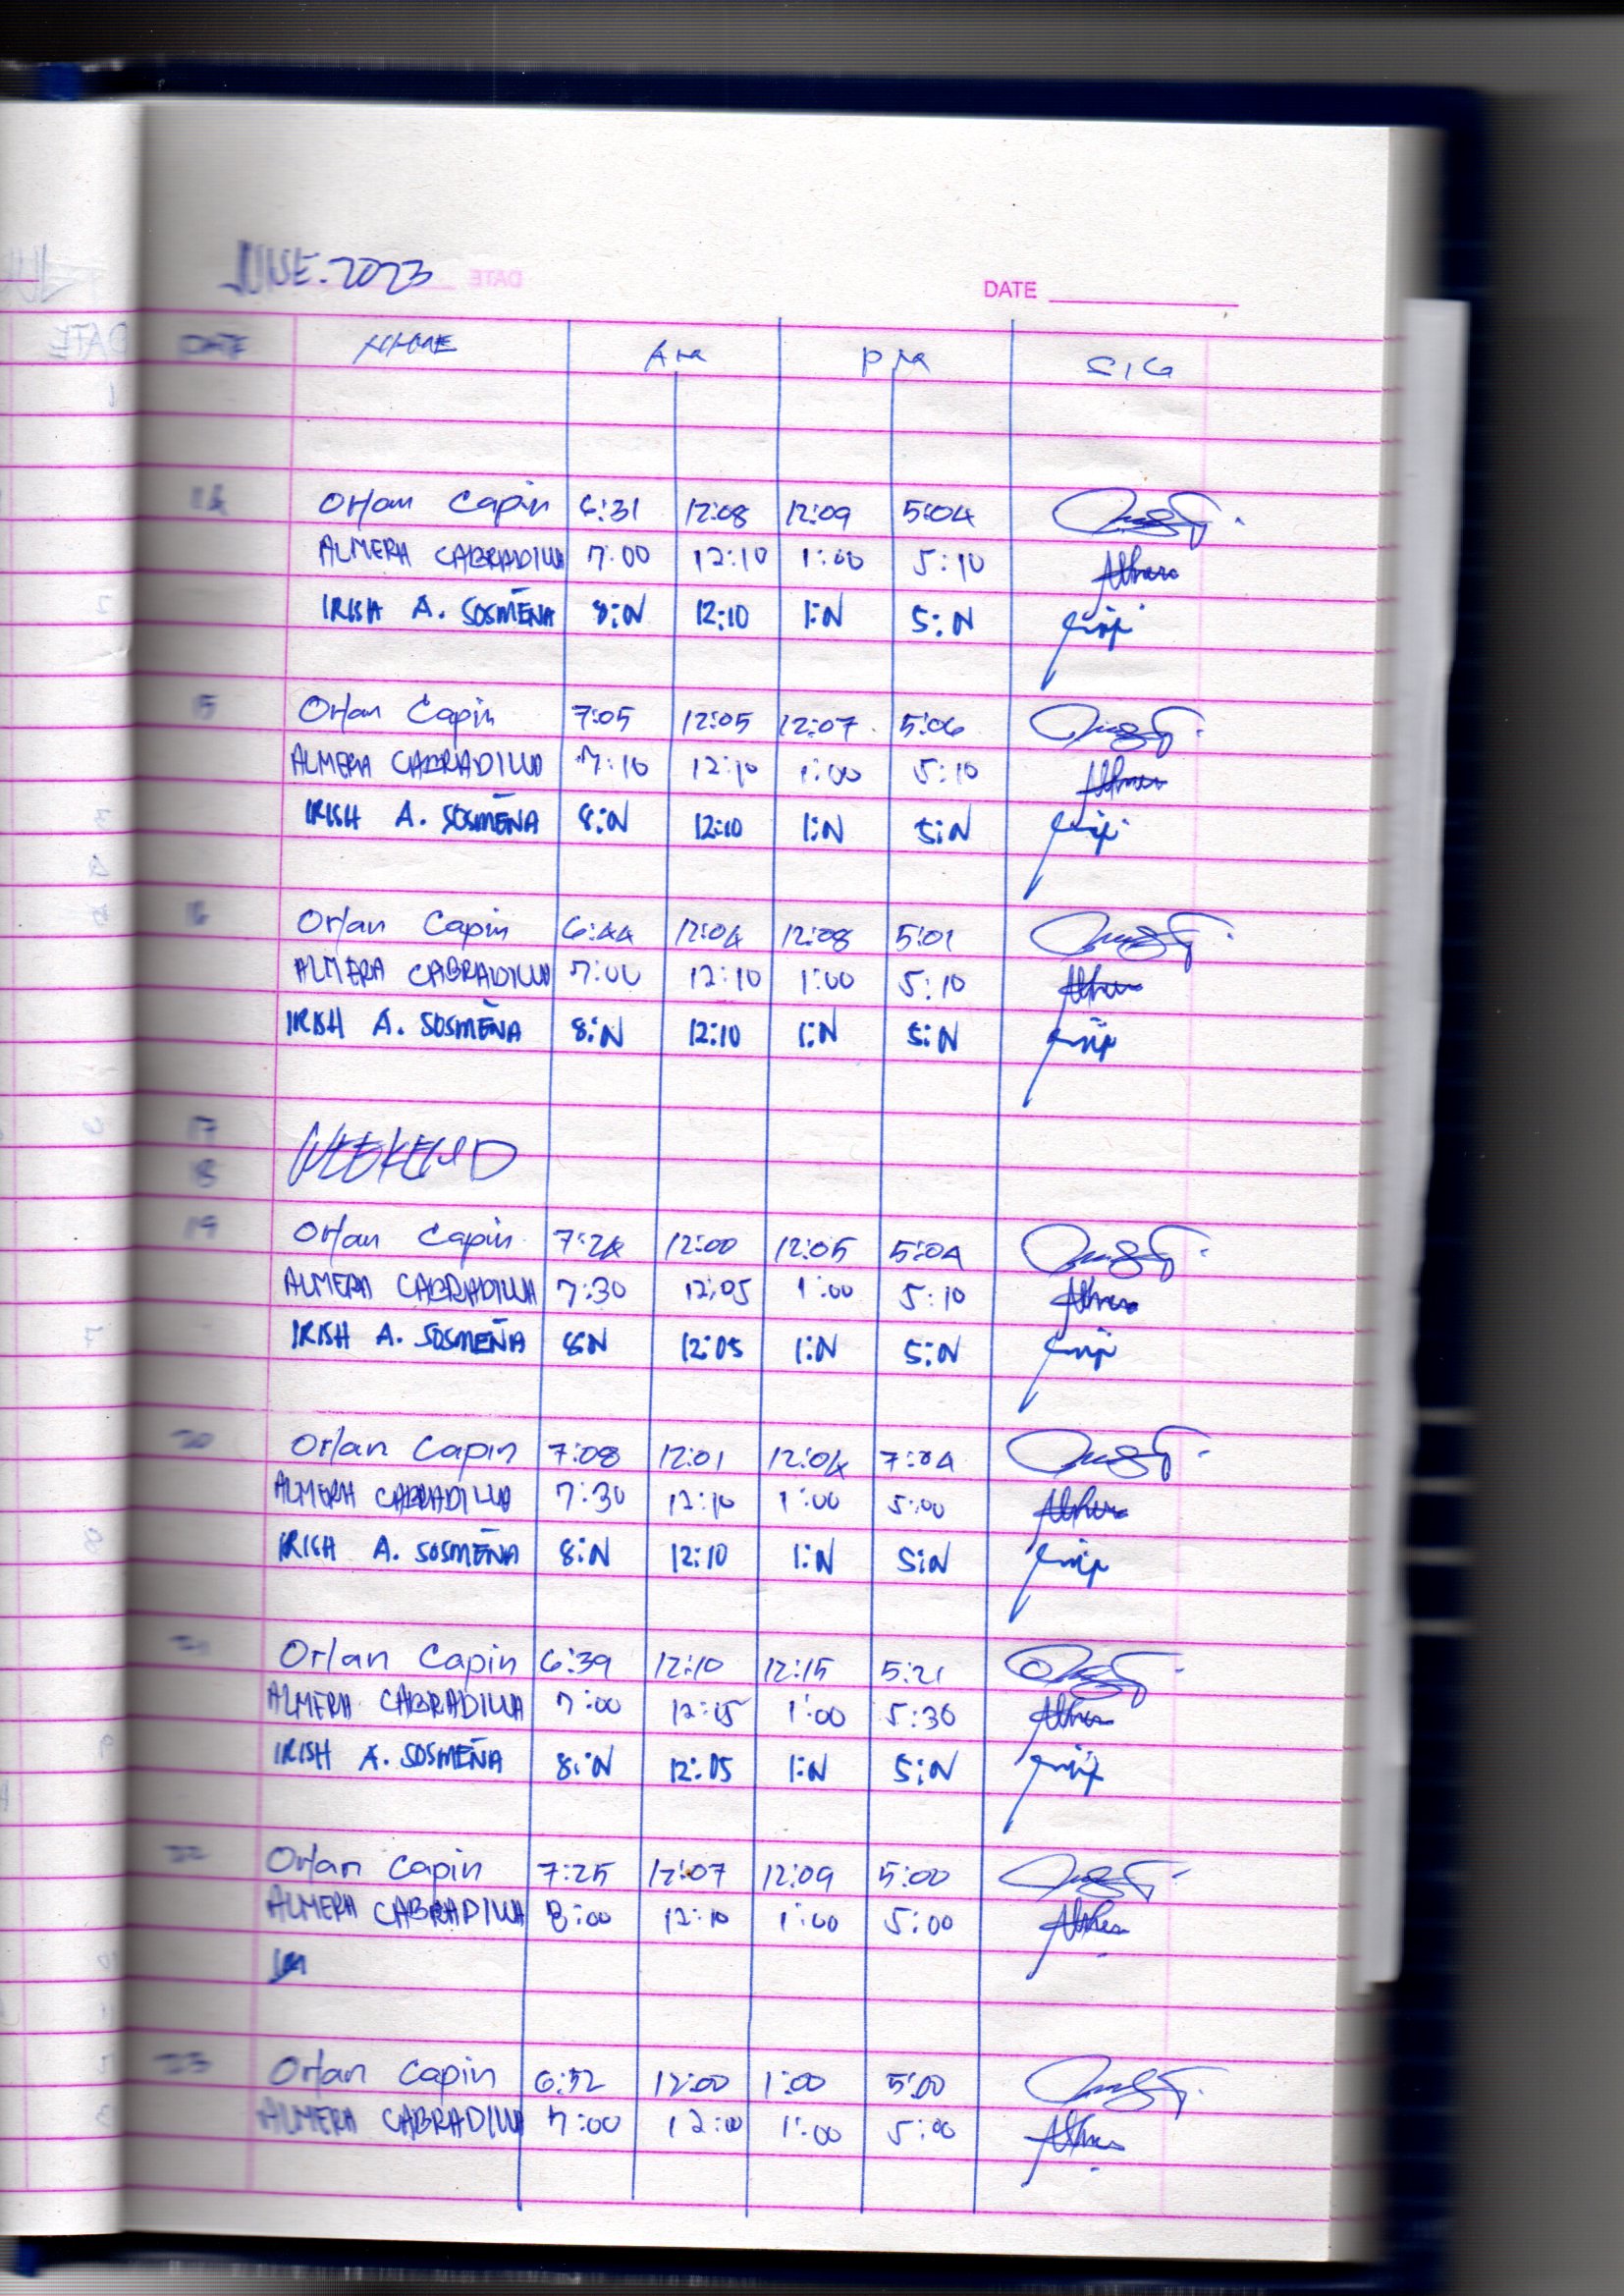 JUNE. 2023
DATE
DATE NAME AM PM SIG
14 Orlan Capin 6:31 12:08 12:09 5:04
ALMERA CABRADILLA 7:00 12:10 1:00 5:10
IRISH A. SOSMEÑA 8:N 12:10 1:N 5:N
15 Orlan Capin 7:05 12:05 12:07 5:06
ALMERA CABRADILLA 7:10 12:10 1:00 5:10
IRISH A. SOSMEÑA 8:N 12:10 1:N 5:N
16 Orlan Capin 6:44 12:04 12:08 5:01
ALMERA CABRADILLA 7:00 12:10 1:00 5:10
IRISH A. SOSMEÑA 8:N 12:10 1:N 5:N
17
WEEKEND
18
19 Orlan Capin 7:24 12:00 12:05 5:04
ALMERA CABRADILLA 7:30 12:05 1:00 5:10
IRISH A. SOSMEÑA 8:N 12:05 1:N 5:N
20 Orlan Capin 7:08 12:01 12:04 7:04
ALMERA CABRADILLA 7:30 12:10 1:00 5:00
IRISH A. SOSMEÑA 8:N 12:10 1:N 5:N
21 Orlan Capin 6:39 12:10 12:15 5:21
ALMERA CABRADILLA 7:00 12:15 1:00 5:30
IRISH A. SOSMEÑA 8:N 12:05 1:N 5:N
22 Orlan Capin 7:25 12:07 12:09 5:00
ALMERA CABRADILLA 8:00 12:10 1:00 5:00
23 Orlan Capin 6:52 12:00 1:00 5:00
ALMERA CABRADILLA 7:00 12:00 1:00 5:00